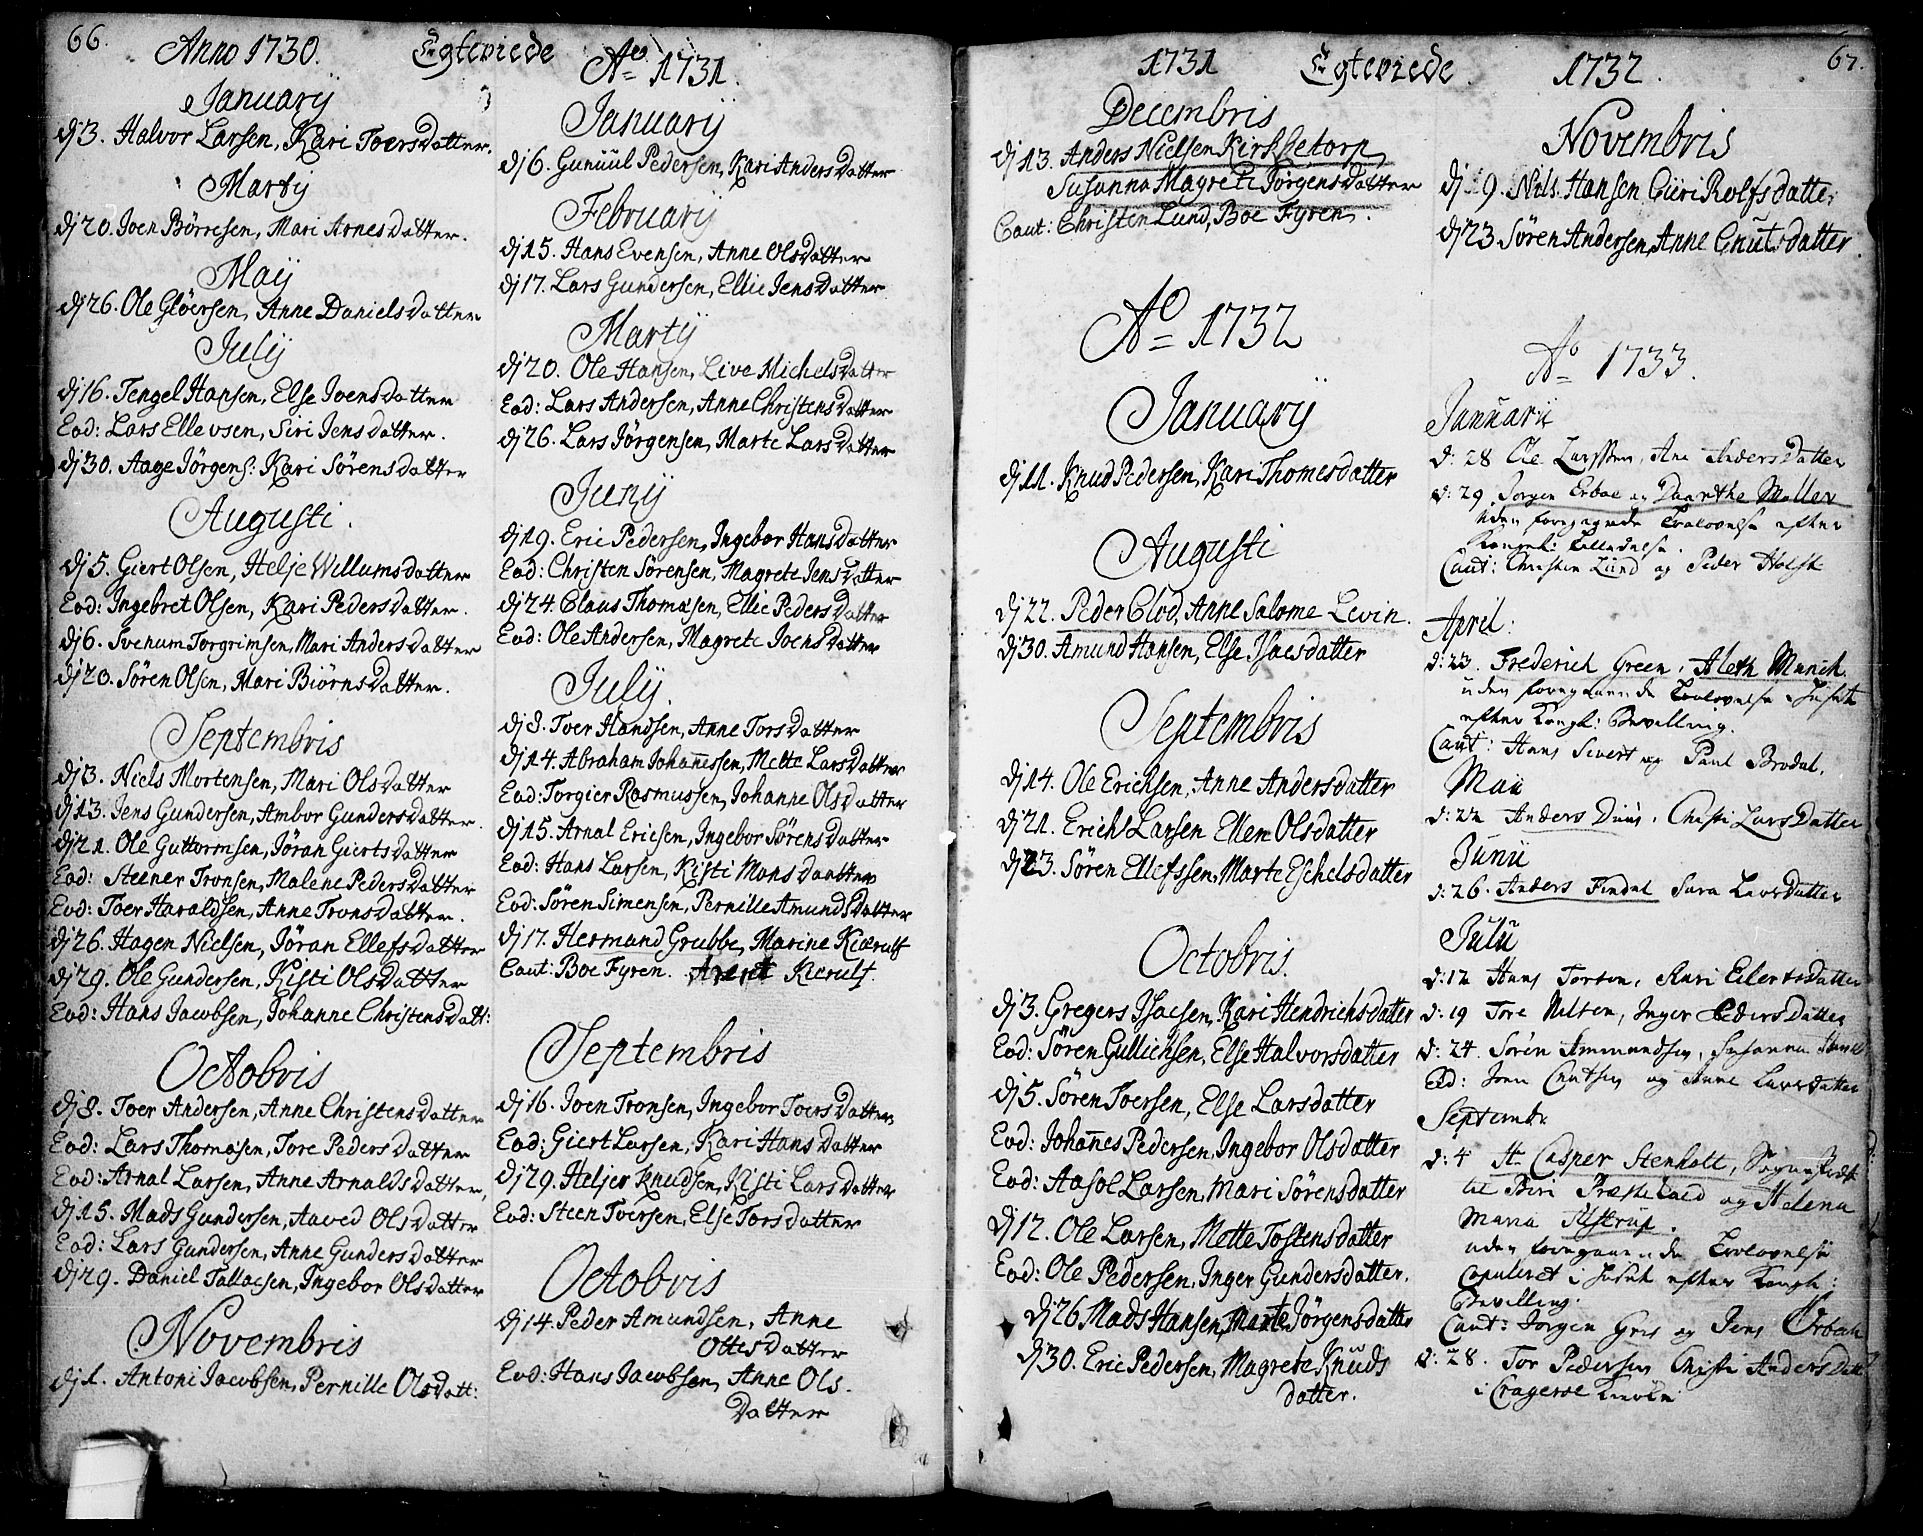 66.
Anno 1730.
Egteviede
January
dj 3. Halvor Larsen, Kari ToersDatter.
Martij
dj 20. Joen Börresen, Mari ArnesDatter.
Maij
dj 26. Ole Glöersen, Anne DanielsDatter
Julij
dj 16. Tengel Hansen, Else Joensdatter
Eod: Lars Ellevsen, Siri Jensdatter.
dj 30. Aage Jörgens: Kari Sörensdatter
Augusti.
dj 5. Giert Olsen, Helje Willumsdatter
Eod: Ingebret Olsen, Kari PedersDatter.
dj 6. Svenum Torgrimsen, Mari AndersDatter
dj 20. Sören Olsen, Mari BiörnsDatter.
Septembris
dj 3. Niels Mortensen, Mari OlsDatter
dj 13. Jens Gundersen, Ambor Gundersdatter.
dj 21. Ole Guttormsen, Jöran Giertsdatter
Eod: Steener Tronsen, Malene PedersDatter
Eod: Toer Haraldsen, Anne TronsDatter.
dj 26. Hagen Nielsen, Jöran EllefsDatter
dj 29. Ole Gundersen, Kisti OlsDatter
Eod: Hans Jacobsen, Johanne ChristensDatt:
Octobris
dj 8. Toer Andersen, Anne ChristensDatter
Eod: Lars Thomasen, Tore PedersDatter
Eod: Arnal Larsen, Anne ArnaldsDatter,
dj 15. Mads Gundersen, Aaved OlsDatter
Eod: Lars Gundersen, Anne GundersDatter
dj 29. Daniel Tallacsen, Ingebor OlsDatter
Novembris
dj 1. Antoni Jacobsen, Pernille OlsDatt:
Ao 1731.
Januarij
dj 6. Gunüül Pedersen, Kari AndersDatter
Februarij
dj 15. Hans Evensen, Anne OlsDatter
dj 17. Lars Gundersen, Ellie JensDatter
Martij
dj 20. Ole Hansen, Live MichelsDatter
Eod: Lars Andersen, Anne ChristensDatter
dj 26. Lars Jörgensen, Marte LarsDatter
Junij
dj 19. Eric Pedersen, Ingebor HansDatter
Eod: Christen Sörensen, Magrete JensDatter
dj 24. Claus Thomasen, Ellie PedersDatter
Eod: Ole Andersen, Magrete JoensDatter
July.
dj 8. Toer Handsen, Anne TorsDatter
dj 14. Abraham Johannessen, Mette LarsDatter
Eod: Torgier Rasmussen, Johanne OlsDatter
dj 15. Arnal Ericsen, Ingebor SörensDatter
Eod: Hans Larsen, Kisti MonsDaatter
Eod: Sören Simensen, Pernille AmundsDatter
dj 17. Hermand Grubbe, Marine Kierulf
Caut: Boe Fyren. Kierulf.
Septembris
dj 16. Joen Tronsen, Ingebor ToersDatter
Eod: Giert Larsen, Kari HansDatter
dj 29. Heljer Knudsen, Kisti LarsDatter
Eod: Steen Toersen, Else Torsdatter
Octobris
dj 14. Peder Amundsen, Anne
Ottesdatter
Eod: Hans Jacobsen, Anne Ols.
Datter
1731
Egteviede.
1732.
67.
Decembris
dj 13. Anders Nielsen Kirksetorp
Susanna Magrete Jörgensdatter
Caut: Christen Lund, Boe Fyren.
Ao 1732
Januarij
dj 11. Knud Pedersen, Kari Thomesdatter
Augusti
dj 22. Peder Clod, Anne Salome Levin.
dj 30. Amund Hansen, Else Isacsdatter
Septembris
dj 14. Ole Erichsen, Anne Andersdatter
dj 21. Erich Larsen Ellen Olsdatter
dj 23. Sören Ellefssen, Marte Eschelsdatter
Octobris.
dj 3. Gregers Isacsen, Kari Hendrichsdatter
Eod: Sören Gullichsen, Else Halvorsdatter
dj 5. Sören Toersen, Else Larsdatter
Eod: Johannes Pedersen, Ingebor Olsdatter
Eod: Aasol Larsen, Mari Sörensdatter
dj 12. Ole Larsen, Mette Tostensdatter
Eod: Ole Pedersen, Inger Gundersdatter.
dj 26 Mads Hansen, Marte Jörgensdatter
dj 30. Eric Pedersen, Magrete Knüds
datter.
Novembris
dj 19. Nils Hansen Guri Rolfsdatter
dj 23. Sören Andersen, Anne Cnutsdatter.
Ao 1733.
Januarii
d: 28 Ole Larssen, Ane AndersDatter
d: 29 Jorgen Erboe og Daarthe Møller
uden foregaaende Trolovelse efter
Kongel: Tilladelse.
Caut: Christen Lund og Peder Holst
April:
d: 23. Frederich Green, Aleth Munch.
uden foregaaende Trolovelse i Huset
efter Kongl: Bevilling.
Caut: Hans Sivert og Paul Brodal.
Maii
d: 22 Anders Duus, Christi LarsDatter
Junii
d: 26. Anders Findal Sara LarsDatter
Julii
d: 12 Hans Torsen, Kari Eilertsdatter
d: 19 Tore Nilsen, Inger PedersDatter
d: 24. Sören Ammundsen, Susanna
Ed: Joen Cnutsen og Anne Larsdatter
Septembr
d: 4 Hr Casper Stenholt, Sognepræst
til Biri Præstegield og Helena
Maria Alstrup.
uden foregaaende Trolovelse
Copuleret i Huset efter Kongl:
Bevilling.
Caut: Jorgen Gris og Jens Örbech
d: 28. Tor Pedersen Christi AndersDatt
i Cragerøe Kircke